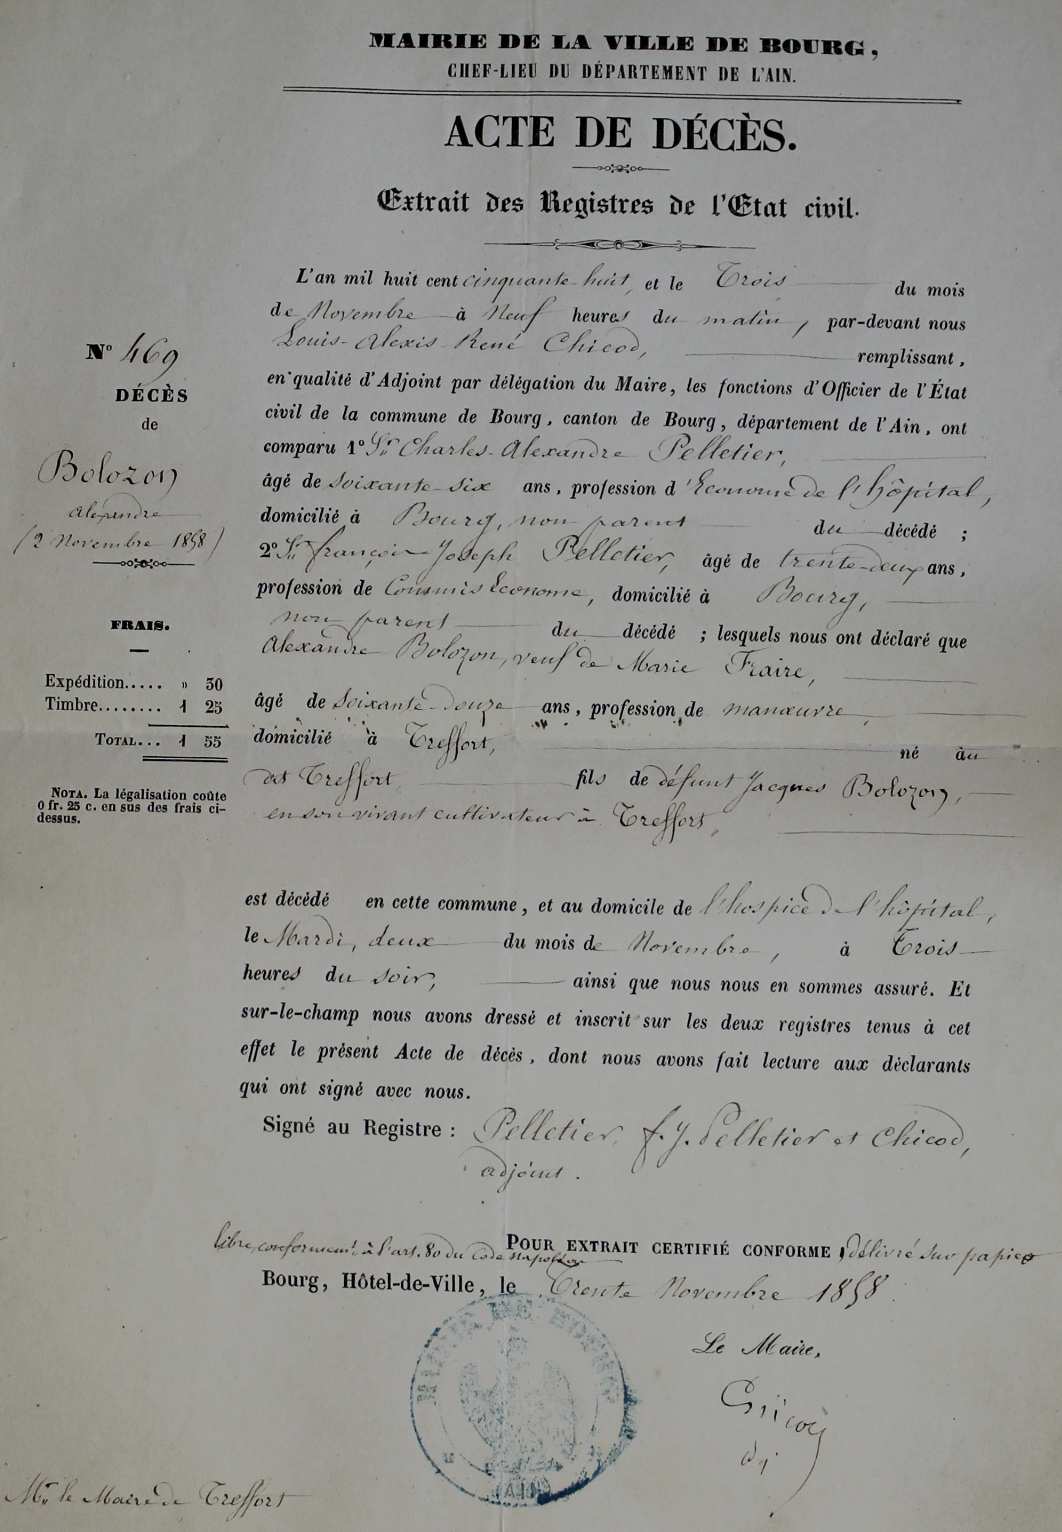 MAIRIE DE LA VILLE DE BOURG,
CHEF-LIEU DU DÉPARTEMENT DE L'AIN.
ACTE DE DÉCÈS.
Extrait des Registres de l'Etat civil.
L'an mil huit cent cinquante-huit, et le Trois du mois
de Novembre à Neuf heures du matin, par-devant nous
Louis-Alexis-René Chicod, remplissant,
en qualité d'Adjoint par délégation du Maire, les fonctions d'Officier de l'État
civil de la commune de Bourg, canton de Bourg, département de l'Ain, ont
comparu 1° Sr. Charles-Alexandre Pelletier,
âgé de soixante-six ans, profession d'Econome de l'hôpital,
domicilié à Bourg, non parent du décédé ;
2° Sr. françois-Joseph Pelletier, âgé de trente-deux ans,
profession de Commis Econome, domicilié à Bourg,
non parent du décédé ; lesquels nous ont déclaré que
Alexandre Bolozon, veuf de Marie Fraire,
âgé de soixante-douze ans, profession de manœuvre,
domicilié à Treffort, né àu
dit Treffort, fils de défunt Jacques Bolozon,
en son vivant cultivateur à Treffort,
est décédé en cette commune, et au domicile de l'hospice de l'hôpital,
le Mardi, deux du mois de Novembre, à Trois
heures du soir, ainsi que nous nous en sommes assuré. Et
sur-le-champ nous avons dressé et inscrit sur les deux registres tenus à cet
effet le présent Acte de décès, dont nous avons fait lecture aux déclarants
qui ont signé avec nous.
Signé au Registre : Pelletier, f. J. Pelletier et Chicod,
adjoint.
POUR EXTRAIT CERTIFIÉ CONFORME, délivré sur papier
libre, conformémt à l'art. 80 du code napoléon
Bourg, Hôtel-de-Ville, le Trente Novembre 1858.
Le Maire,
Chicod
adj
MAIRIE DE BOURG
(AIN)
N° 469
DÉCÈS
de
Bolozon
Alexandre
(2 Novembre 1858)
FRAIS.
Expédition..... » 30
Timbre........ 1 25
TOTAL... 1 55
NOTA. La légalisation coûte
0 fr. 25 c. en sus des frais ci-
dessus.
Mr. le Maire de Treffort